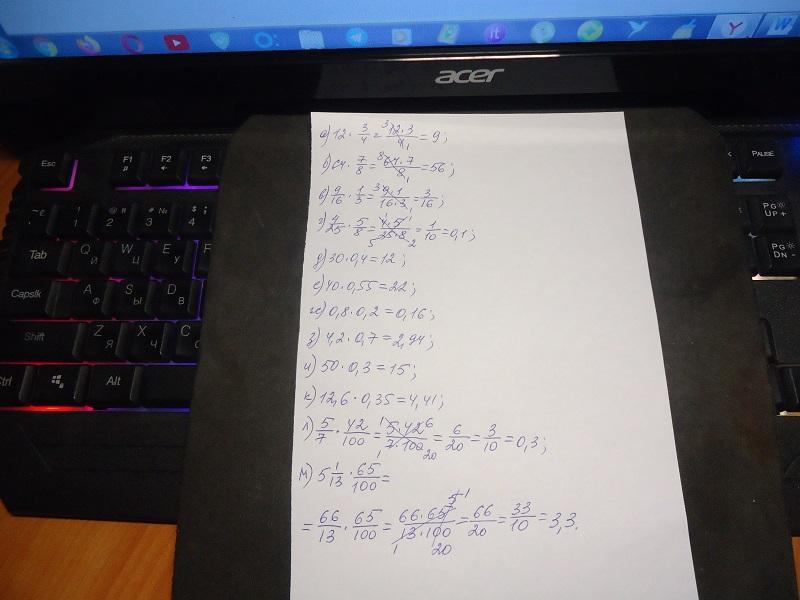 acer
Esc F1 F2 F3 PAUSE
PG UP +
PG DN -
Tab Q Й W Ц E У
Capslk A Ф S Ы D В
Shift Z Я X Ч C С
Ctrl Alt
а) 12 · 3/4 = 12·3/4 = 9;
б) 64 · 7/8 = 64·7/8 = 56;
в) 9/16 · 1/3 = 9·1/16·3 = 3/16;
г) 4/25 · 5/8 = 4·5/25·8 = 1/10 = 0,1;
д) 30 · 0,4 = 12;
е) 40 · 0,55 = 22;
ж) 0,8 · 0,2 = 0,16;
з) 4,2 · 0,7 = 2,94;
и) 50 · 0,3 = 15;
к) 12,6 · 0,35 = 4,41;
л) 5/7 · 42/100 = 5·42/7·100 = 6/20 = 3/10 = 0,3;
м) 5 1/13 · 65/100 =
= 66/13 · 65/100 = 66·65/13·100 = 66/20 = 33/10 = 3,3.